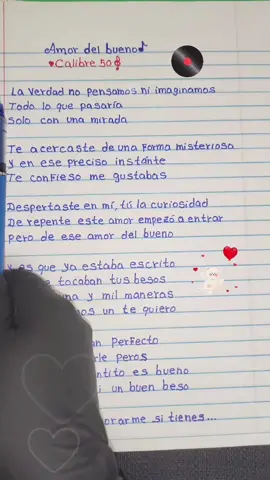 Amor del bueno
Calibre 50
La verdad no pensamos ni imaginamos
Todo lo que pasaría
Solo con una mirada
Te acercaste de una forma misteriosa
Y en ese preciso instante
Te confieso me gustabas
Despertaste en mí, tú la curiosidad
De repente este amor empezó a entrar
pero de ese amor del bueno
es que ya estaba escrito
tocaban tus besos
y mil maneras
un te quiero
perfecto
peros
es bueno
un buen beso
si tienes...